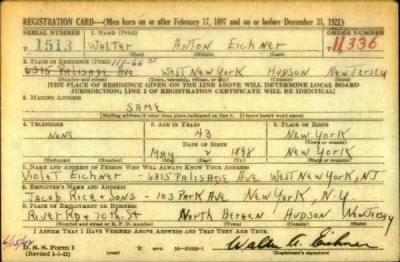 REGISTRATION CARD—(Men born on or after February 17, 1897 and on or before December 31, 1921)
SERIAL NUMBER 1. NAME (Print) ORDER NUMBER
1513 Walter Anton Eichner 11336
(First) (Middle) (Last)
2. PLACE OF RESIDENCE (Print)
6315 Palisade Ave West New York Hudson New Jersey
(Number and street) (Town, township, village, or city) (County) (State)
[THE PLACE OF RESIDENCE GIVEN ON THE LINE ABOVE WILL DETERMINE LOCAL BOARD
JURISDICTION; LINE 2 OF REGISTRATION CERTIFICATE WILL BE IDENTICAL]
3. MAILING ADDRESS
SAME
[Mailing address if other than place indicated on line 2. If same insert word same]
4. TELEPHONE 5. AGE IN YEARS 6. PLACE OF BIRTH
None 43 New York
DATE OF BIRTH
May 2 1898 New York
7. NAME AND ADDRESS OF PERSON WHO WILL ALWAYS KNOW YOUR ADDRESS
Violet Eichner - 6315 Palisade Ave West New York, N.J
8. EMPLOYER'S NAME AND ADDRESS
Jacob Rice & Sons - 103 Park Ave New York, N.Y.
9. PLACE OF EMPLOYMENT OR BUSINESS
River Rd & 70th St North Bergen Hudson New Jersey
(Number and street or R. F. D. number) (Town) (County) (State)
I AFFIRM THAT I HAVE VERIFIED ABOVE ANSWERS AND THAT THEY ARE TRUE.
D. S. S. Form 1
(Revised 1-1-42) Walter A. Eichner